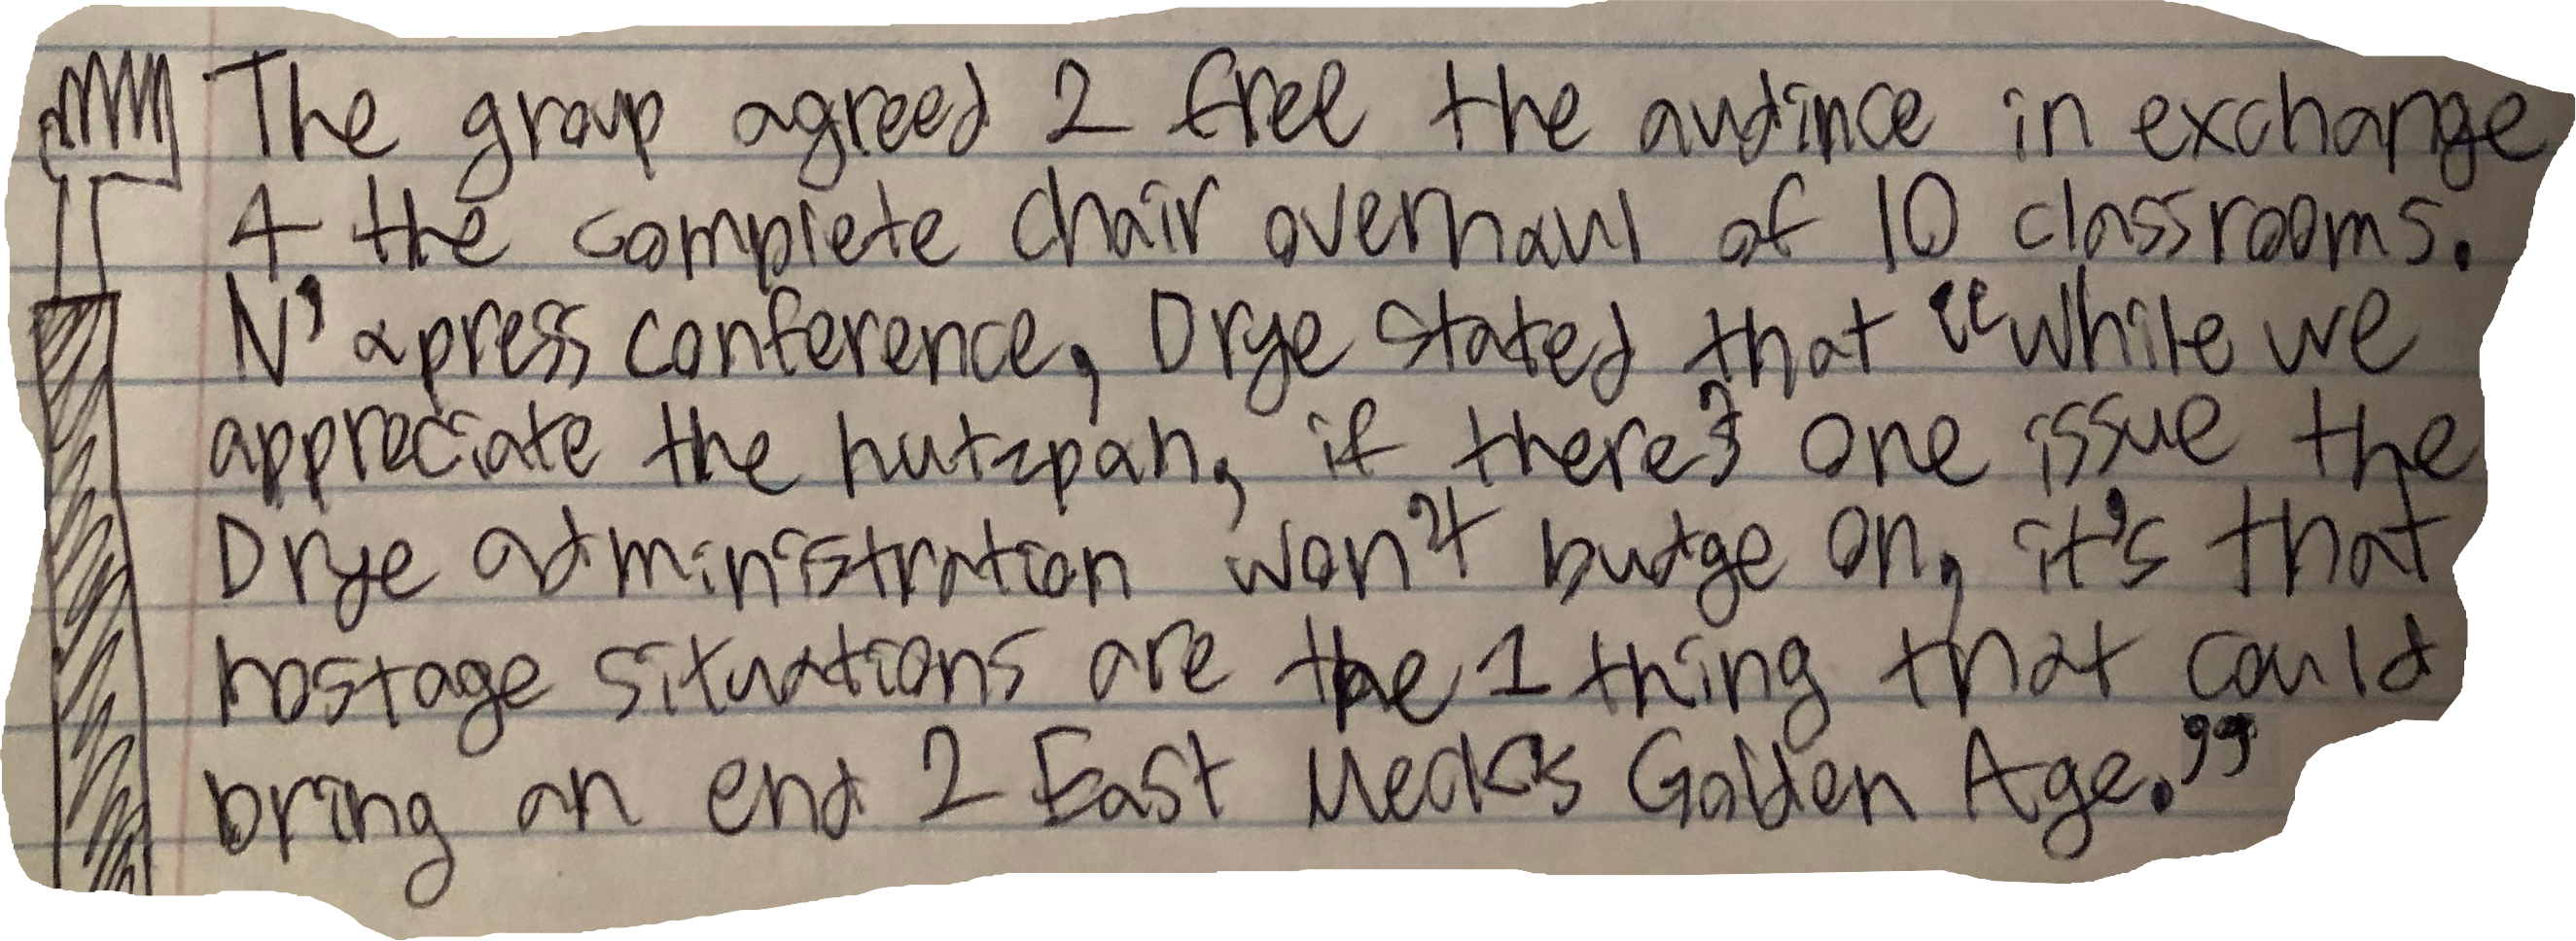 The group agreed 2 free the audince in exchange
4 the complete chair overhaul of 10 classrooms.
N' a press conference, Drye stated that "while we
appreciate the hutzpah, if there's one issue the
Drye administration won't budge on, it's that
hostage situations are the 1 thing that could
bring an end 2 East Meck's Golden Age."